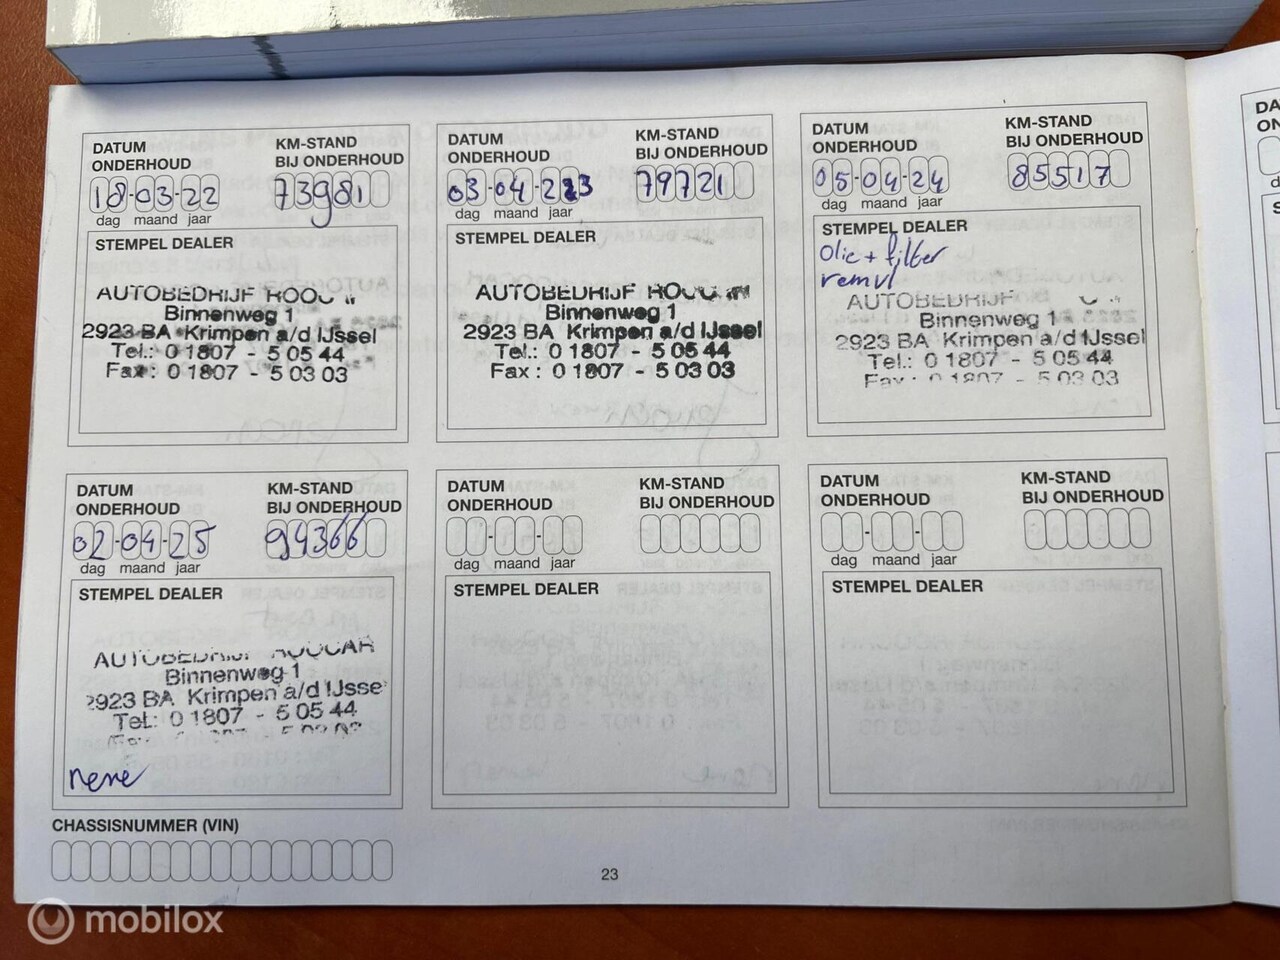 DATUM ONDERHOUD
KM-STAND BIJ ONDERHOUD
18-03-22
73981
dag maand jaar
STEMPEL DEALER
AUTOBEDRIJF
Binnenweg 1
2923 BA Krimpen a/d IJssel
Tel.: 0 1807 - 5 05 44
Fax : 0 1807 - 5 03 03
DATUM ONDERHOUD
KM-STAND BIJ ONDERHOUD
03-04-223
79721
dag maand jaar
STEMPEL DEALER
AUTOBEDRIJF
Binnenweg 1
2923 BA Krimpen a/d IJssel
Tel.: 0 1807 - 5 05 44
Fax : 0 1807 - 5 03 03
DATUM ONDERHOUD
KM-STAND BIJ ONDERHOUD
05-04-24
85517
dag maand jaar
STEMPEL DEALER
Olie + filter
remvl
AUTOBEDRIJF
Binnenweg 1
2923 BA Krimpen a/d IJssel
Tel.: 0 1807 - 5 05 44
Fax : 0 1807 - 5 03 03
DATUM ONDERHOUD
KM-STAND BIJ ONDERHOUD
02-04-25
94366
dag maand jaar
STEMPEL DEALER
AUTOBEDRIJF
Binnenweg 1
2923 BA Krimpen a/d IJsse
Tel.: 0 1807 - 5 05 44
DATUM ONDERHOUD
KM-STAND BIJ ONDERHOUD
dag maand jaar
STEMPEL DEALER
DATUM ONDERHOUD
KM-STAND BIJ ONDERHOUD
dag maand jaar
STEMPEL DEALER
CHASSISNUMMER (VIN)
23
mobilox